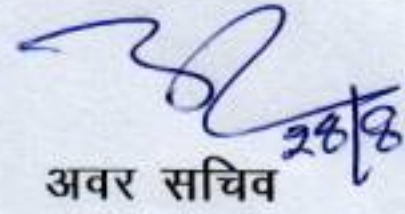 28/8
अवर सचिव